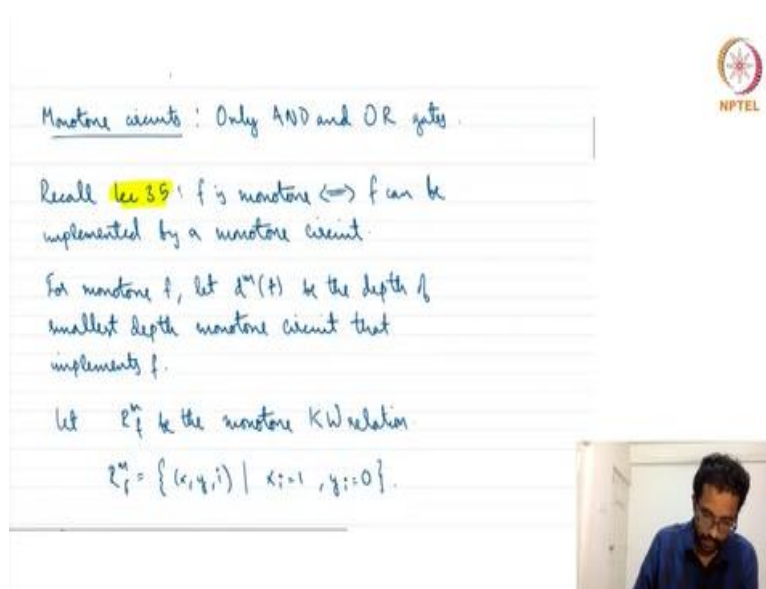 NPTEL
Monotone circuits : Only AND and OR gates.
Recall lec 35 : f is monotone <=> f can be
implemented by a monotone circuit.
For monotone f, let d^m(f) be the depth of
smallest depth monotone circuit that
implements f.
Let R_f^m be the monotone KW relation.
R_f^m = { (x, y, i) | x_i = 1 , y_i = 0 }.